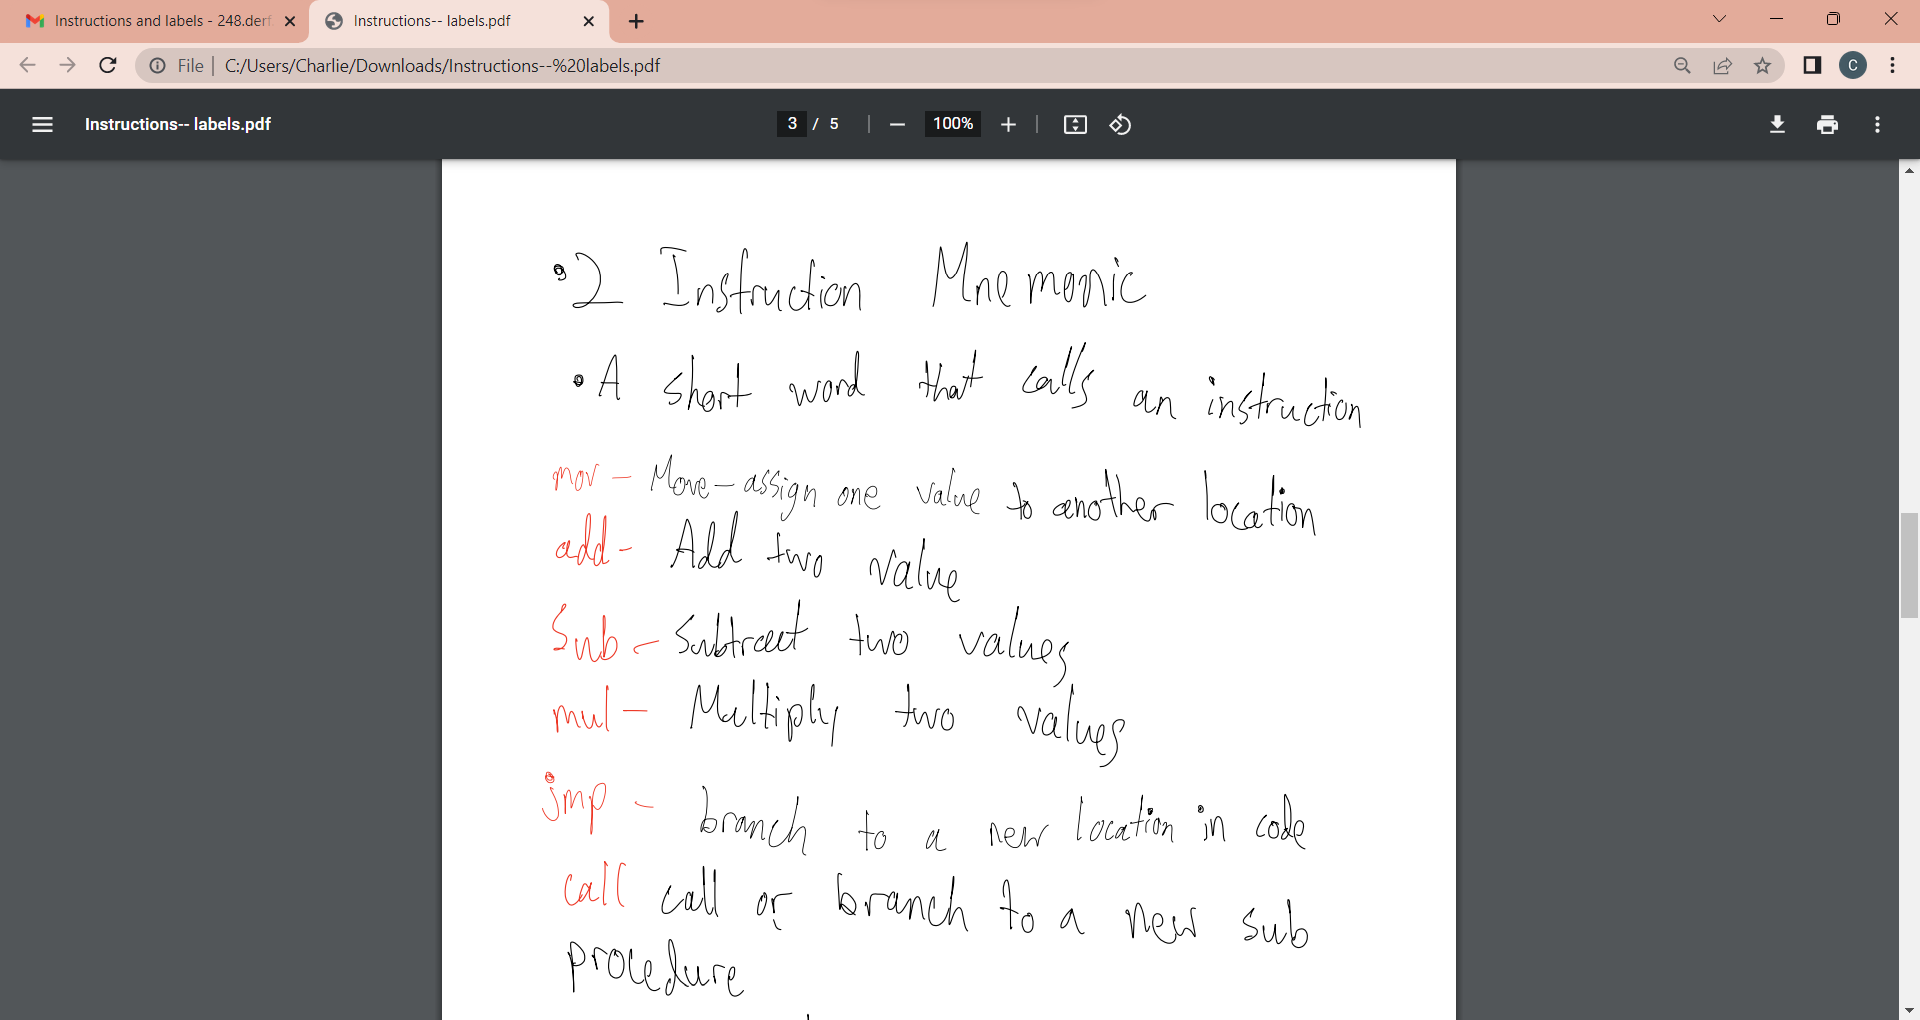 Instructions and labels - 248.derf
Instructions-- labels.pdf
File | C:/Users/Charlie/Downloads/Instructions--%20labels.pdf
C
Instructions-- labels.pdf
3 / 5
100%
•2 Instruction Mnemonic
• A short word that calls an instruction
mov - Move - assign one value to another location
add - Add two value
Sub - Subtract two values
mul - Multiply two values
jmp - branch to a new location in code
call call or branch to a new sub
procedure